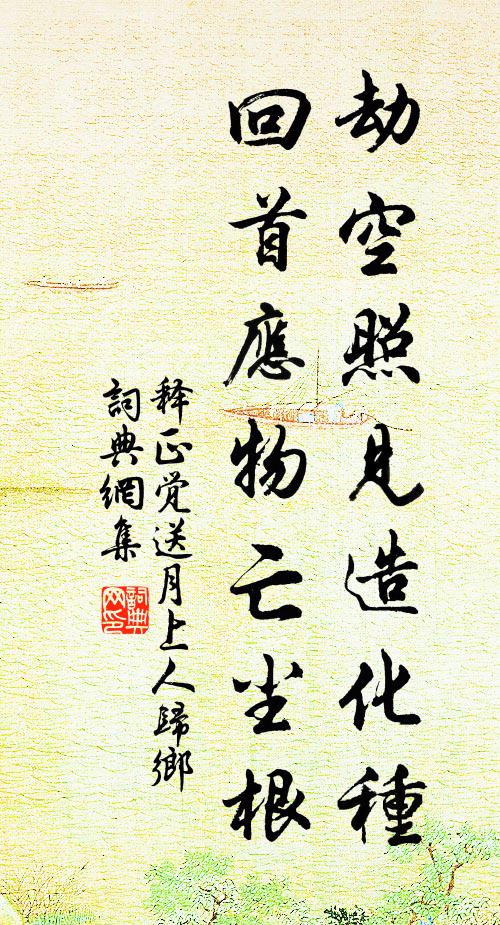 劫空照見造化種
回首應物亡尘根
释正觉送月上人歸鄉
詞典網集
詞典
网印